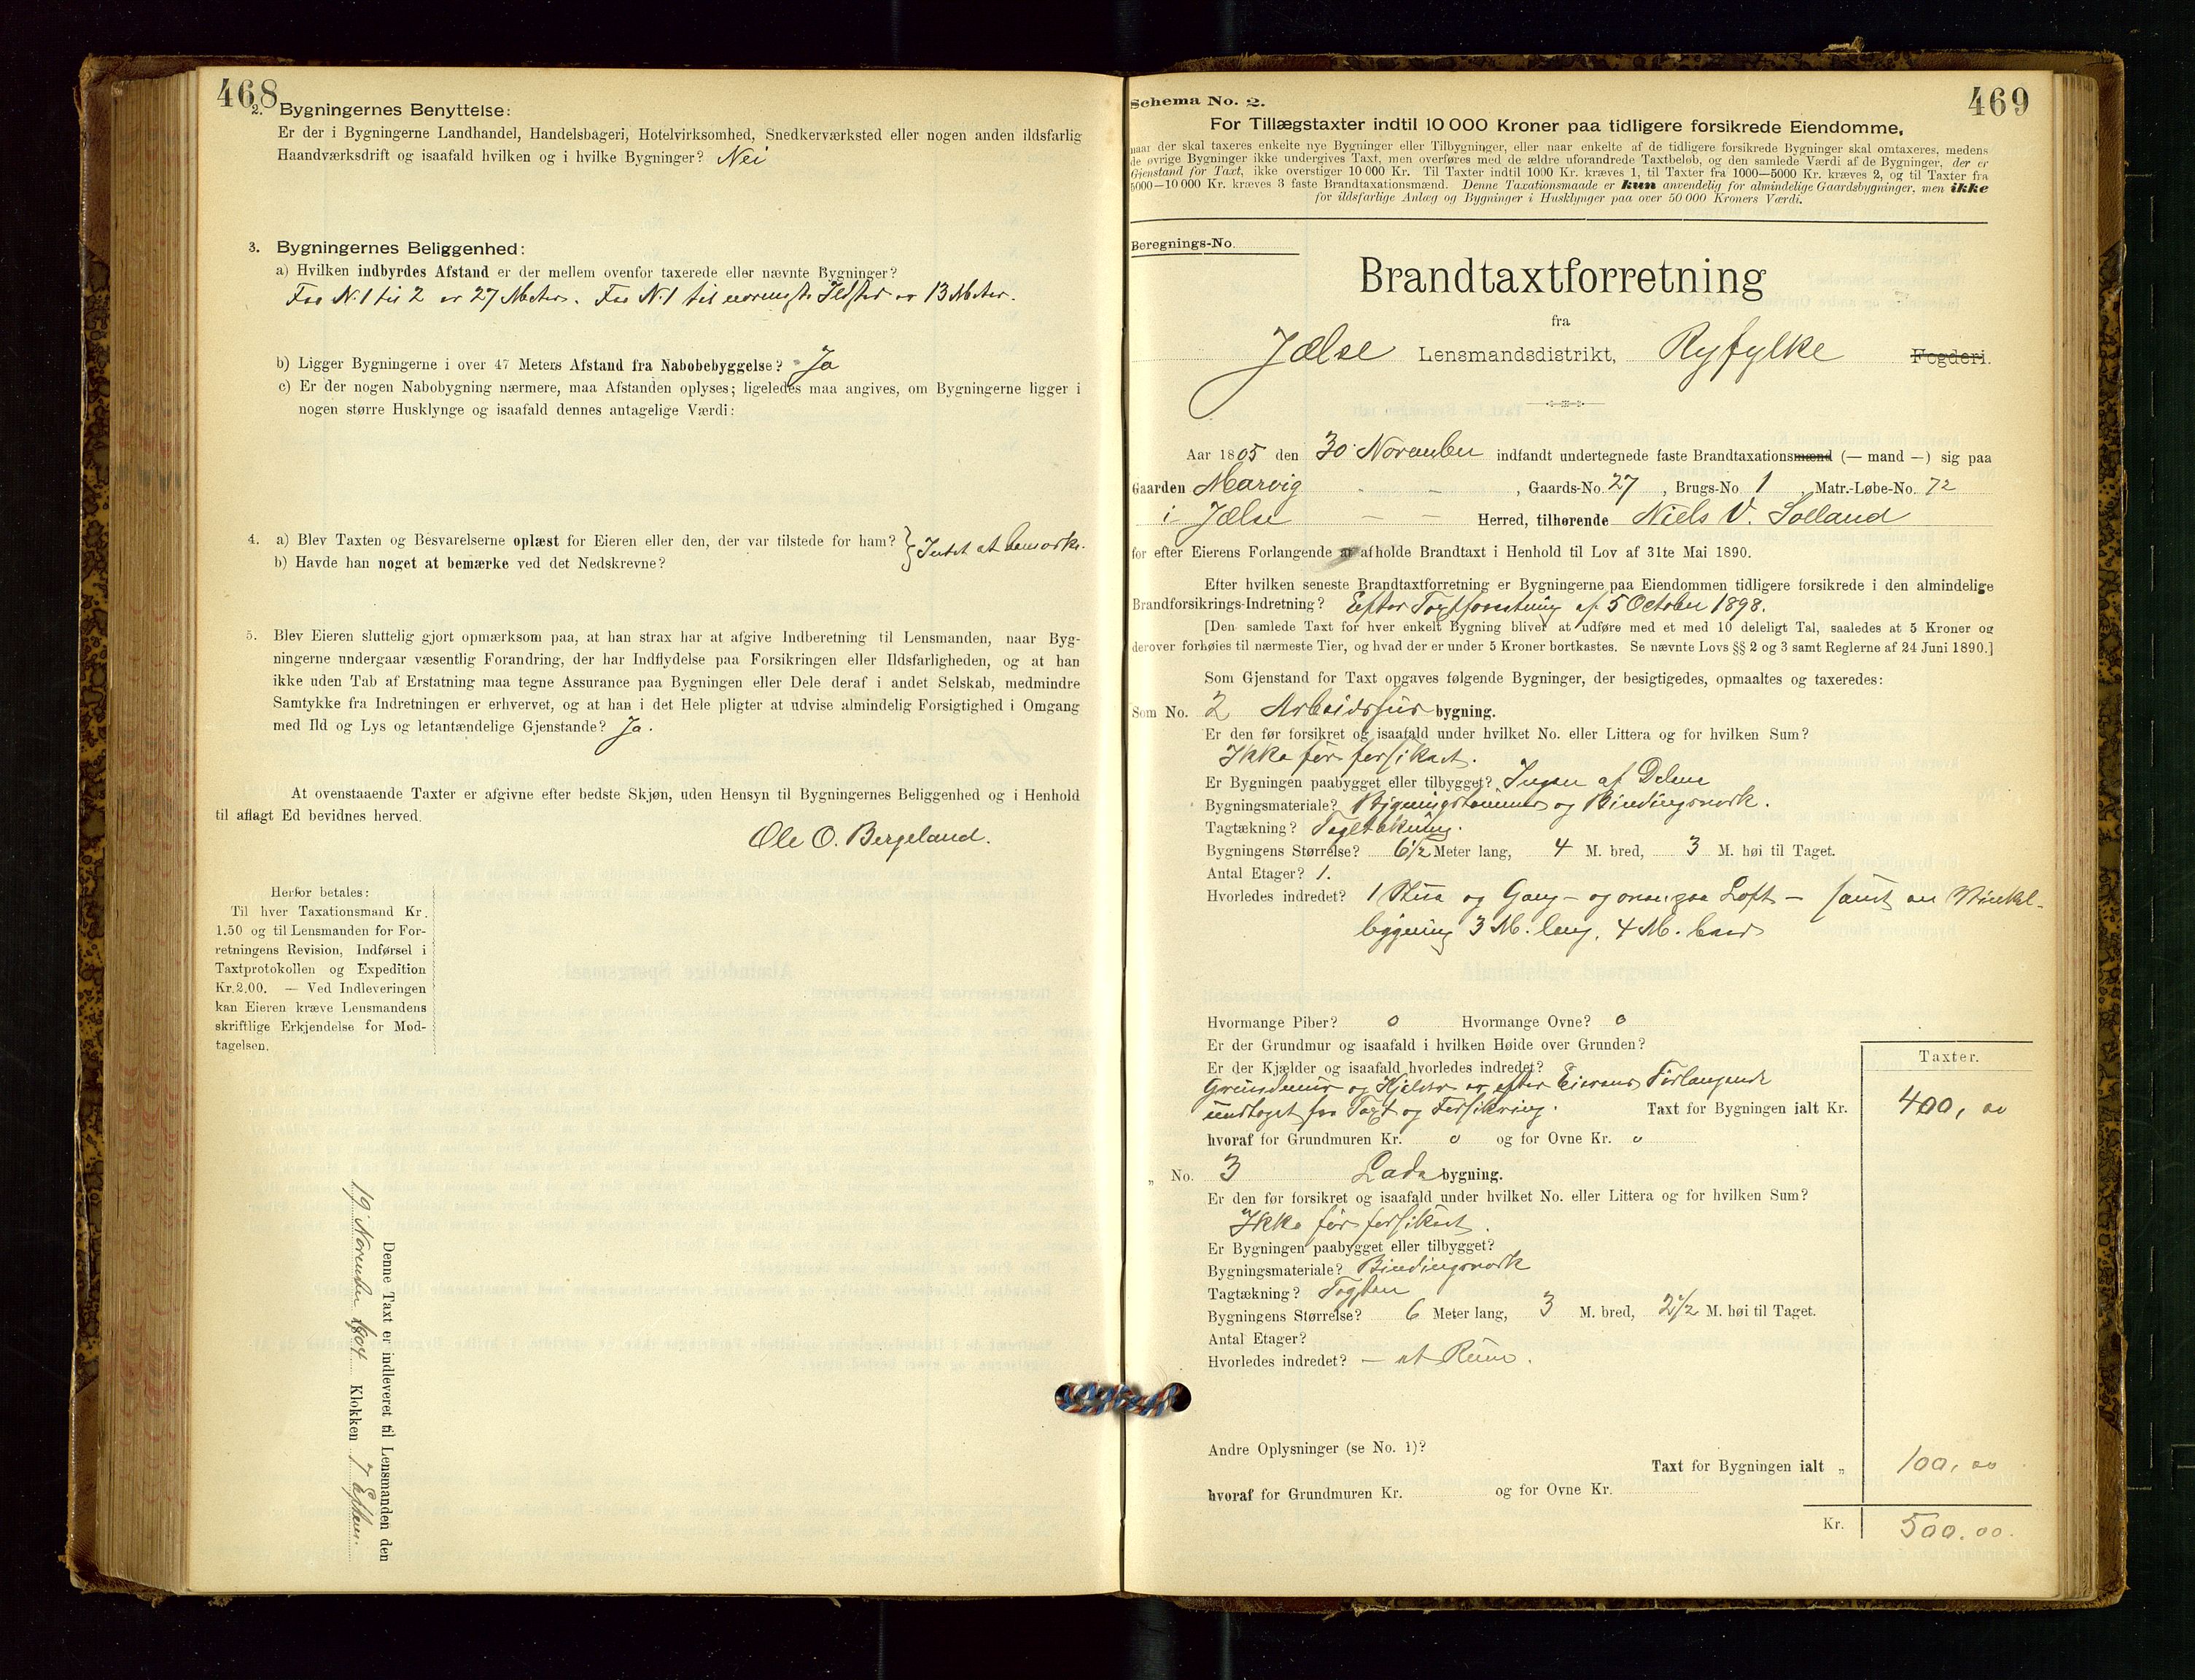 468
2. Bygningernes Benyttelse:
Er der i Bygningerne Landhandel, Handelsbageri, Hotelvirksomhed, Snedkerværksted eller nogen anden ildsfarlig
Haandværksdrift og isaafald hvilken og i hvilke Bygninger? Nei
3. Bygningernes Beliggenhed:
a) Hvilken indbyrdes Afstand er der mellem ovenfor taxerede eller nævnte Bygninger?
Fra N. 1 til 2 er 27 Meter. Fra N. 1 til nærmeste Ildsted er 13 Meter.
b) Ligger Bygningerne i over 47 Meters Afstand fra Nabobebyggelse? Ja
c) Er der nogen Nabobygning nærmere, maa Afstanden oplyses; ligeledes maa angives, om Bygningerne ligger i
nogen større Husklynge og isaafald dennes antagelige Værdi:
4. a) Blev Taxten og Besvarelserne oplæst for Eieren eller den, der var tilstede for ham? } Intet at bemærke.
b) Havde han noget at bemærke ved det Nedskrevne?
5. Blev Eieren sluttelig gjort opmærksom paa, at han strax har at afgive Indberetning til Lensmanden, naar Byg-
ningerne undergaar væsentlig Forandring, der har Indflydelse paa Forsikringen eller Ildsfarligheden, og at han
ikke uden Tab af Erstatning maa tegne Assurance paa Bygningen eller Dele deraf i andet Selskab, medmindre
Samtykke fra Indretningen er erhvervet, og at han i det Hele pligter at udvise almindelig Forsigtighed i Omgang
med Ild og Lys og letantændelige Gjenstande? Ja.
At ovenstaaende Taxter er afgivne efter bedste Skjøn, uden Hensyn til Bygningernes Beliggenhed og i Henhold
til aflagt Ed bevidnes herved.
Ole O. Bergeland.
Herfor betales:
Til hver Taxationsmand Kr.
1.50 og til Lensmanden for For-
retningens Revision, Indførsel i
Taxtprotokollen og Expedition
Kr. 2.00. — Ved Indleveringen
kan Eieren kræve Lensmandens
skriftlige Erkjendelse for Mod-
tagelsen.
Denne Taxt er indleveret til Lensmanden den
19. November 1904 Klokken 7 Efterm.
469
Schema No. 2.
For Tillægstaxter indtil 10 000 Kroner paa tidligere forsikrede Eiendomme,
naar der skal taxeres enkelte nye Bygninger eller Tilbygninger, eller naar enkelte af de tidligere forsikrede Bygninger skal omtaxeres, medens
de øvrige Bygninger ikke undergives Taxt, men overføres med de ældre uforandrede Taxtbeløb, og den samlede Værdi af de Bygninger, der er
Gjenstand for Taxt, ikke overstiger 10 000 Kr. Til Taxter indtil 1000 Kr. kræves 1, til Taxter fra 1000—5000 Kr. kræves 2, og til Taxter fra
5000—10 000 Kr. kræves 3 faste Brandtaxationsmænd. Denne Taxationsmaade er kun anvendelig for almindelige Gaardsbygninger, men ikke
for ildsfarlige Anlæg og Bygninger i Husklynger paa over 50 000 Kroners Værdi.
Beregnings-No.
Brandtaxtforretning
fra
Jælse Lensmandsdistrikt, Ryfylke Fogderi.
Aar 1805 den 30. November indfandt undertegnede faste Brandtaxationsmænd (— mand —) sig paa
Gaarden Marvig - - , Gaards-No. 27, Brugs-No 1 Matr.-Løbe-No. 72
i Jælse — — Herred, tilhørende Niels V. Solland
for efter Eierens Forlangende at afholde Brandtaxt i Henhold til Lov af 31te Mai 1890.
Efter hvilken seneste Brandtaxtforretning er Bygningerne paa Eiendommen tidligere forsikrede i den almindelige
Brandforsikrings-Indretning? Efter Taxtforretning af 5 October 1898.
[Den samlede Taxt for hver enkelt Bygning bliver at udføre med et med 10 deleligt Tal, saaledes at 5 Kroner og
derover forhøies til nærmeste Tier, og hvad der er under 5 Kroner bortkastes. Se nævnte Lovs §§ 2 og 3 samt Reglerne af 24 Juni 1890.]
Som Gjenstand for Taxt opgaves følgende Bygninger, der besigtigedes, opmaaltes og taxeredes:
Som No. 2 Arbeidshus bygning.
Er den før forsikret og isaafald under hvilket No. eller Littera og for hvilken Sum?
Ikke før forsikret.
Er Bygningen paabygget eller tilbygget? Ingen af Delene
Bygningsmateriale? Bygningstømmer og Bindingsværk.
Tagtækning? Tagltækning.
Bygningens Størrelse? 6 1/2 Meter lang, 4 M. bred, 3 M. høi til Taget.
Antal Etager? 1.
Hvorledes indredet? 1 Stua og Gang — og ovenpaa Loft — samt en Vinkel-
bygning 3 M. lang, 4 M. bred
Hvormange Piber? 0 Hvormange Ovne? 0
Er der Grundmur og isaafald i hvilken Høide over Grunden?
Er der Kjælder og isaafald hvorledes indredet?
Grundmur og Kjelder er efter Eierens Forlangende
undtaget fra Taxt og Forsikring. Taxt for Bygningen ialt Kr.
Taxter.
400,00
hvoraf for Grundmuren Kr. 0 og for Ovne Kr. 0
„ No. 3 Lade bygning.
Er den før forsikret og isaafald under hvilket No. eller Littera og for hvilken Sum?
Ikke før forsikret.
Er Bygningen paabygget eller tilbygget?
Bygningsmateriale? Bindingsværk
Tagtækning? Taglsten
Bygningens Størrelse? 6 Meter lang, 3 M. bred, 2 1/2 M. høi til Taget.
Antal Etager?
Hvorledes indredet? — et Rum.
Andre Oplysninger (se No. 1)?
Taxt for Bygningen ialt „ 100,00
hvoraf for Grundmuren Kr. og for Ovne Kr.
Kr. 500.00.